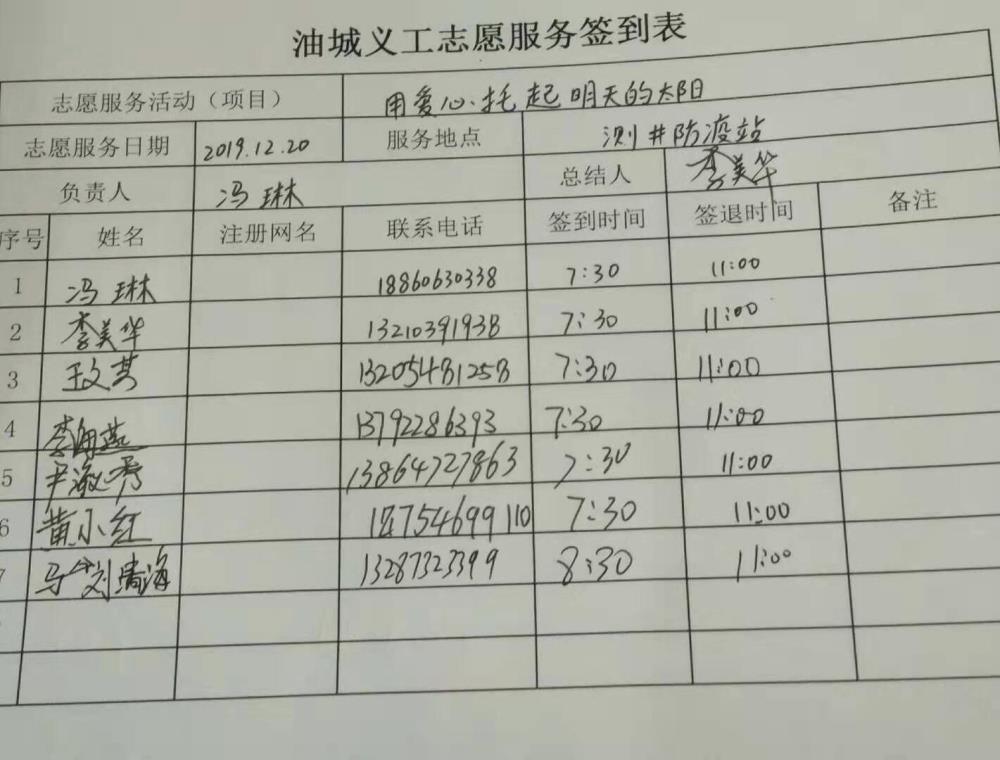 油城义工志愿服务签到表
志愿服务活动（项目） 用爱心托起明天的太阳
志愿服务日期 2019.12.20 服务地点 测井防疫站
负责人 冯琳 总结人 李美华
序号 姓名 注册网名 联系电话 签到时间 签退时间 备注
1 冯琳 18860630338 7:30 11:00
2 李美华 13210391938 7:30 11:00
3 王文英 13205481258 7:30 11:00
4 李海燕 13792286393 7:30 11:00
5 尹淑秀 13864727863 7:30 11:00
6 黄小红 18754699110 7:30 11:00
7 刘清海 13287323399 8:30 11:00